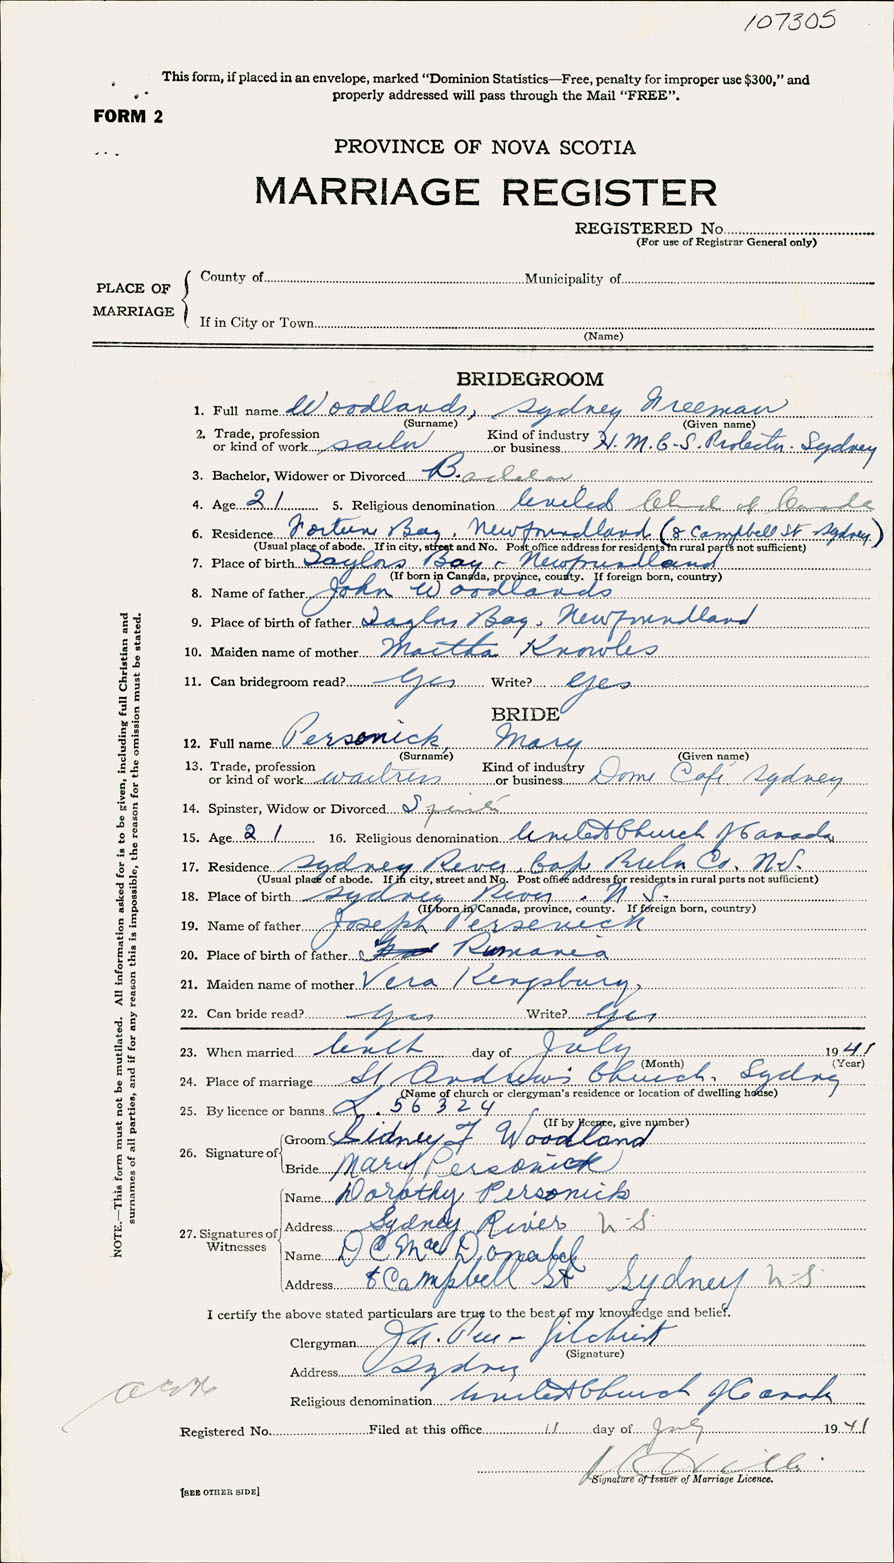 107305
This form, if placed in an envelope, marked “Dominion Statistics—Free, penalty for improper use $300,” and
properly addressed will pass through the Mail “FREE”.
FORM 2
PROVINCE OF NOVA SCOTIA
MARRIAGE REGISTER
REGISTERED No.
(For use of Registrar General only)
PLACE OF MARRIAGE
County of Municipality of
If in City or Town
(Name)
BRIDEGROOM
1. Full name Woodlands, Sydney Freeman
(Surname) (Given name)
2. Trade, profession or kind of work sailor Kind of industry or business H.M.C.S. Protector. Sydney
3. Bachelor, Widower or Divorced Bachelor
4. Age 21 5. Religious denomination United Church of Canada
6. Residence Fortune Bay, Newfoundland (8 Campbell St Sydney)
(Usual place of abode. If in city, street and No. Post office address for residents in rural parts not sufficient)
7. Place of birth Taylors Bay - Newfoundland
(If born in Canada, province, county. If foreign born, country)
8. Name of father John Woodlands
9. Place of birth of father Taylors Bay, Newfoundland
10. Maiden name of mother Martha Knowles
11. Can bridegroom read? Yes Write? Yes
BRIDE
12. Full name Personick, Mary
(Surname) (Given name)
13. Trade, profession or kind of work waitress Kind of industry or business Dome Café Sydney
14. Spinster, Widow or Divorced Spinster
15. Age 21 16. Religious denomination United Church of Canada
17. Residence Sydney River, Cap Breton Co. N.S.
(Usual place of abode. If in city, street and No. Post office address for residents in rural parts not sufficient)
18. Place of birth Sydney River, N.S.
(If born in Canada, province, county. If foreign born, country)
19. Name of father Joseph Personick
20. Place of birth of father Rumania
21. Maiden name of mother Vera Kingsbury,
22. Can bride read? Yes Write? Yes
23. When married tenth day of July 1941
(Month) (Year)
24. Place of marriage St. Andrew's Church, Sydney
(Name of church or clergyman's residence or location of dwelling house)
25. By licence or banns L. 56324
(If by licence, give number)
26. Signature of
Groom Sidney F Woodland
Bride Mary Personick
27. Signatures of Witnesses
Name Dorothy Personick
Address Sydney River N.S.
Name D C MacDonald
Address 8 Campbell St Sydney N.S.
I certify the above stated particulars are true to the best of my knowledge and belief.
Clergyman Gilchrist
(Signature)
Address Sydney
Religious denomination United Church of Canada
Registered No. Filed at this office 11 day of July 1941
Signature of Issuer of Marriage Licence.
[SEE OTHER SIDE]
NOTE.—This form must not be mutilated. All information asked for is to be given, including full Christian and
surnames of all parties, and if for any reason this is impossible, the reason for the omission must be stated.